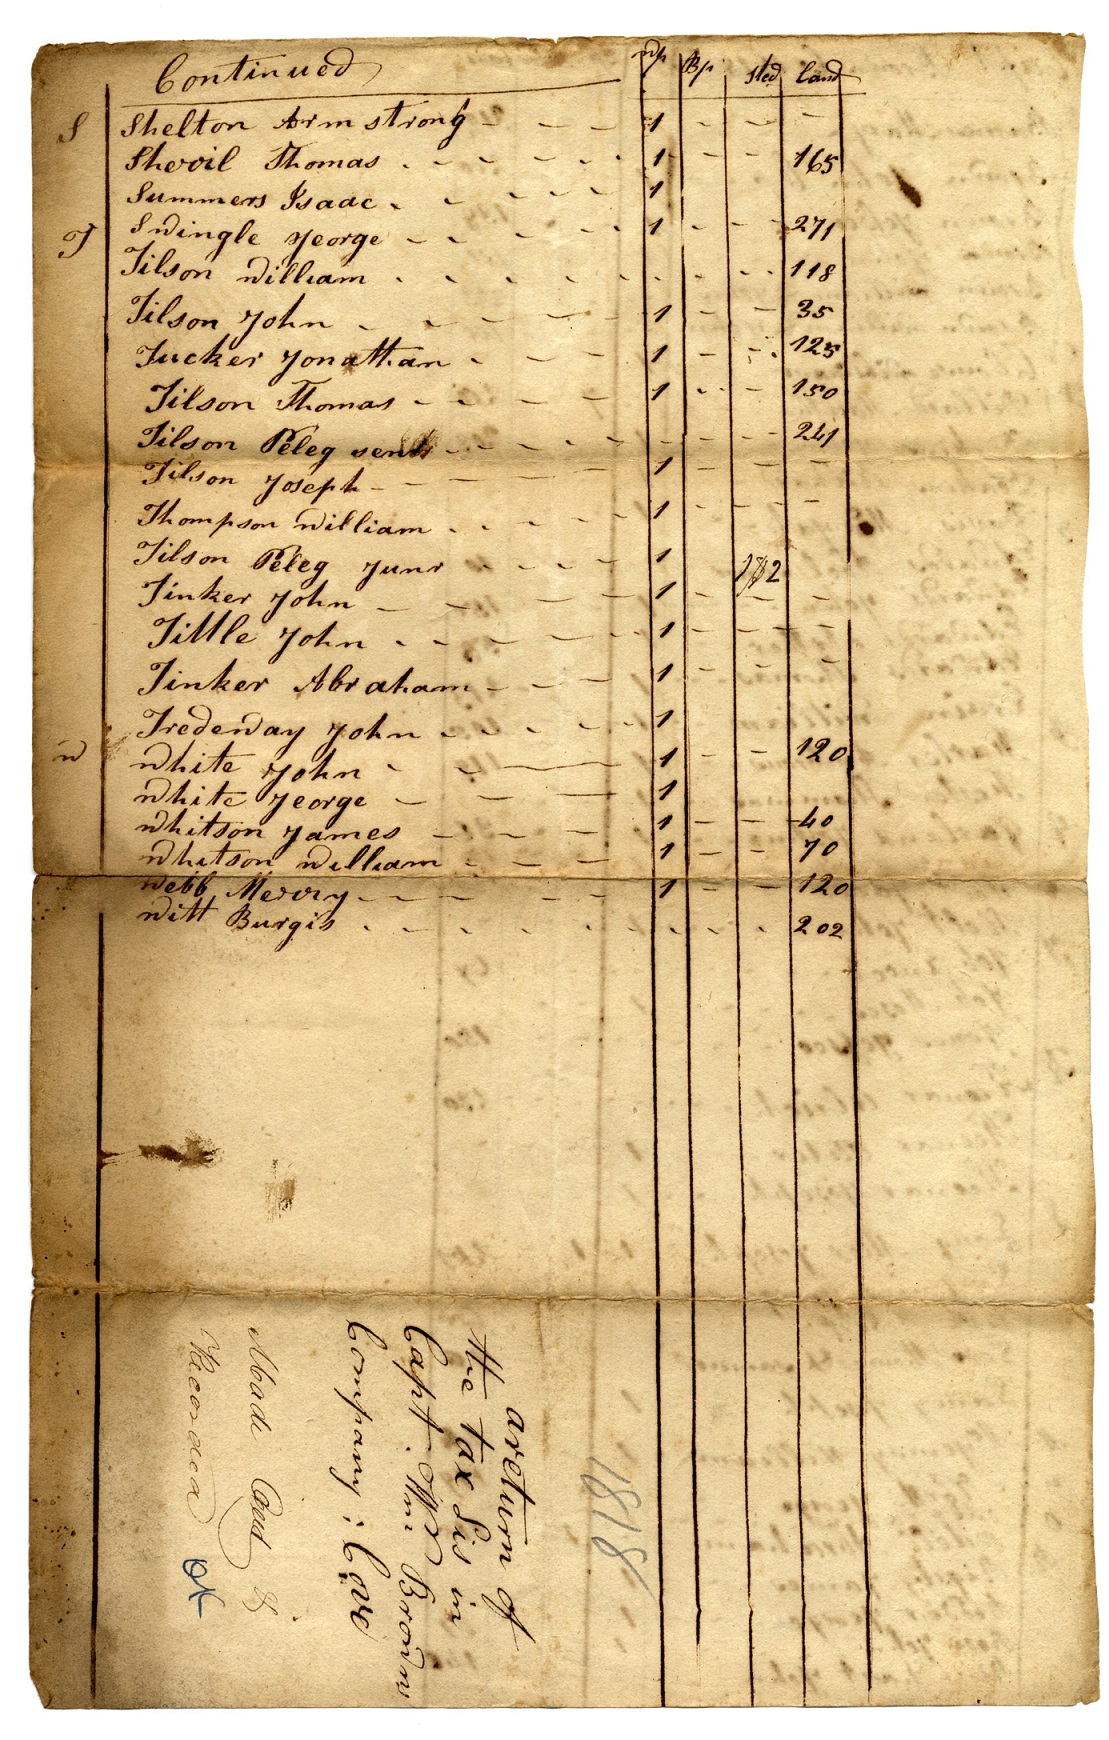 Continued wp Bp sted Land
S Shelton Armstrong - - - 1 - - - -
Shevil Thomas - - - - - 1 - - 165
Summers Isaac - - - - - 1
Swingle George - - - - - 1 - - - 271
T Tilson William - - - - - - - - - 118
Tilson John - - - - 1 - - 35
Tucker Jonathan - - - 1 - - 125
Tilson Thomas - - - - 1 - - - 150
Tilson Peleg senr - - - - - - - - 241
Tilson Joseph - - - - - 1 - - - -
Thompson William - - - - - 1 - - - -
Tilson Peleg Junr - - - - 1 182
Tinker John - - - - 1 - - - -
Tittle John - - - - - 1 - - - -
Tinker Abraham - - - 1 - - - -
Tredeway John - - - - - 1
W White John - - 1 - - 120
White George - - 1
Whitson James - - - 1 - - 40
Whitson William - - - - 1 - - 70
Webb Merry - - - - - 1 - - 120
Witt Burgis - - - - - - - - - 202
1818
a return of
the tax Lis in
Capt. Wm Browns
Company : Cove
Made Out &
Recorded OK